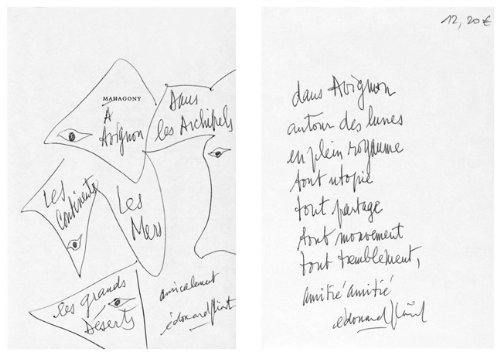 MAHAGONY
À
Avignon
Dans
les Archipels
Les
Continents
Les
Mers
les grands
Déserts
amicalement
édouard
12,20€
dans Avignon
autour des lunes
en plein royaume
tout utopie
tout partage
tout mouvement
tout tremblement,
amitié amitié
édouard